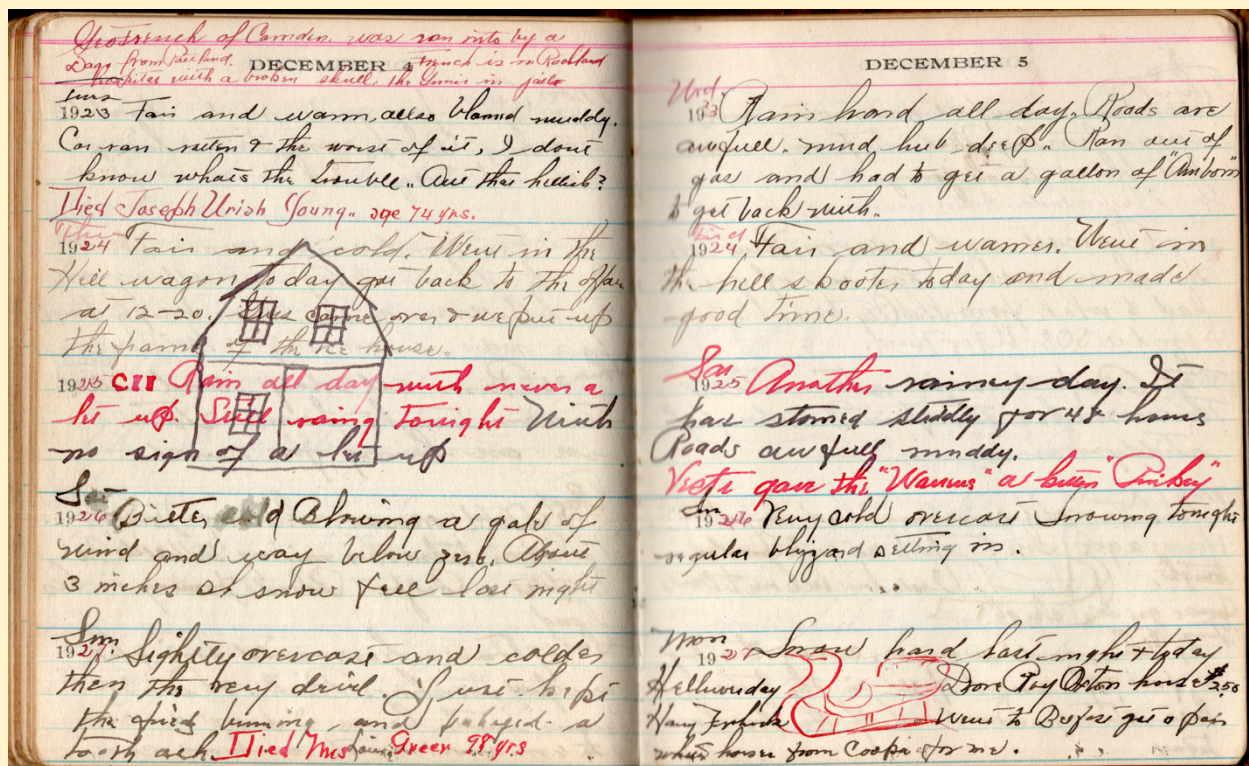 of Camden was ran into by a
from Portland. French is in Rockland
hospital with a broken skull. the in jail
DECEMBER 4
Tues
1923 Fair and warm, also blamed muddy.
Car ran rotten & the worst of it, I dont
know whats the trouble.. Aint that hellish?
Died Joseph Uriah Young.. age 74 yrs.
Thur
1924 Fair and cold. Went in the
Hell wagon today got back to the
at 12-20. Gus came over & we put up
the frame of the ice house.
1925 Rain all day with never a
let up. Still raing tonight With
no sign of a let up
Sat
1926 Bitter cold Blowing a gale of
wind and way below zero. About
3 inches of snow fell last night
Sun
1927. Slightly overcast and colder
then the very devil. Just kept
the fires burning and babyed a
tooth ach. Died Mrs Green 98 yrs
DECEMBER 5
Wed.
1923 Rain hard all day. Roads are
awfull. mud hub deep.. Ran out of
gas and had to get a gallon of
to get back with.
1924 Fair and warmer. Went in
the hell scooter today and made
good time.
Sat
1925 Another rainey day. It
has stormed steddly for 48 hours
Roads awfull muddy.
gave the "Warrens" a kitten
Sun
1926 Very cold overcast Snowing tonight
regular blizzard setting in.
Mon
1927 Snow hard last night & today
Helluvaday Drove Roy horse $250
Harry Went to Belfast get a pair
white horses from for me.